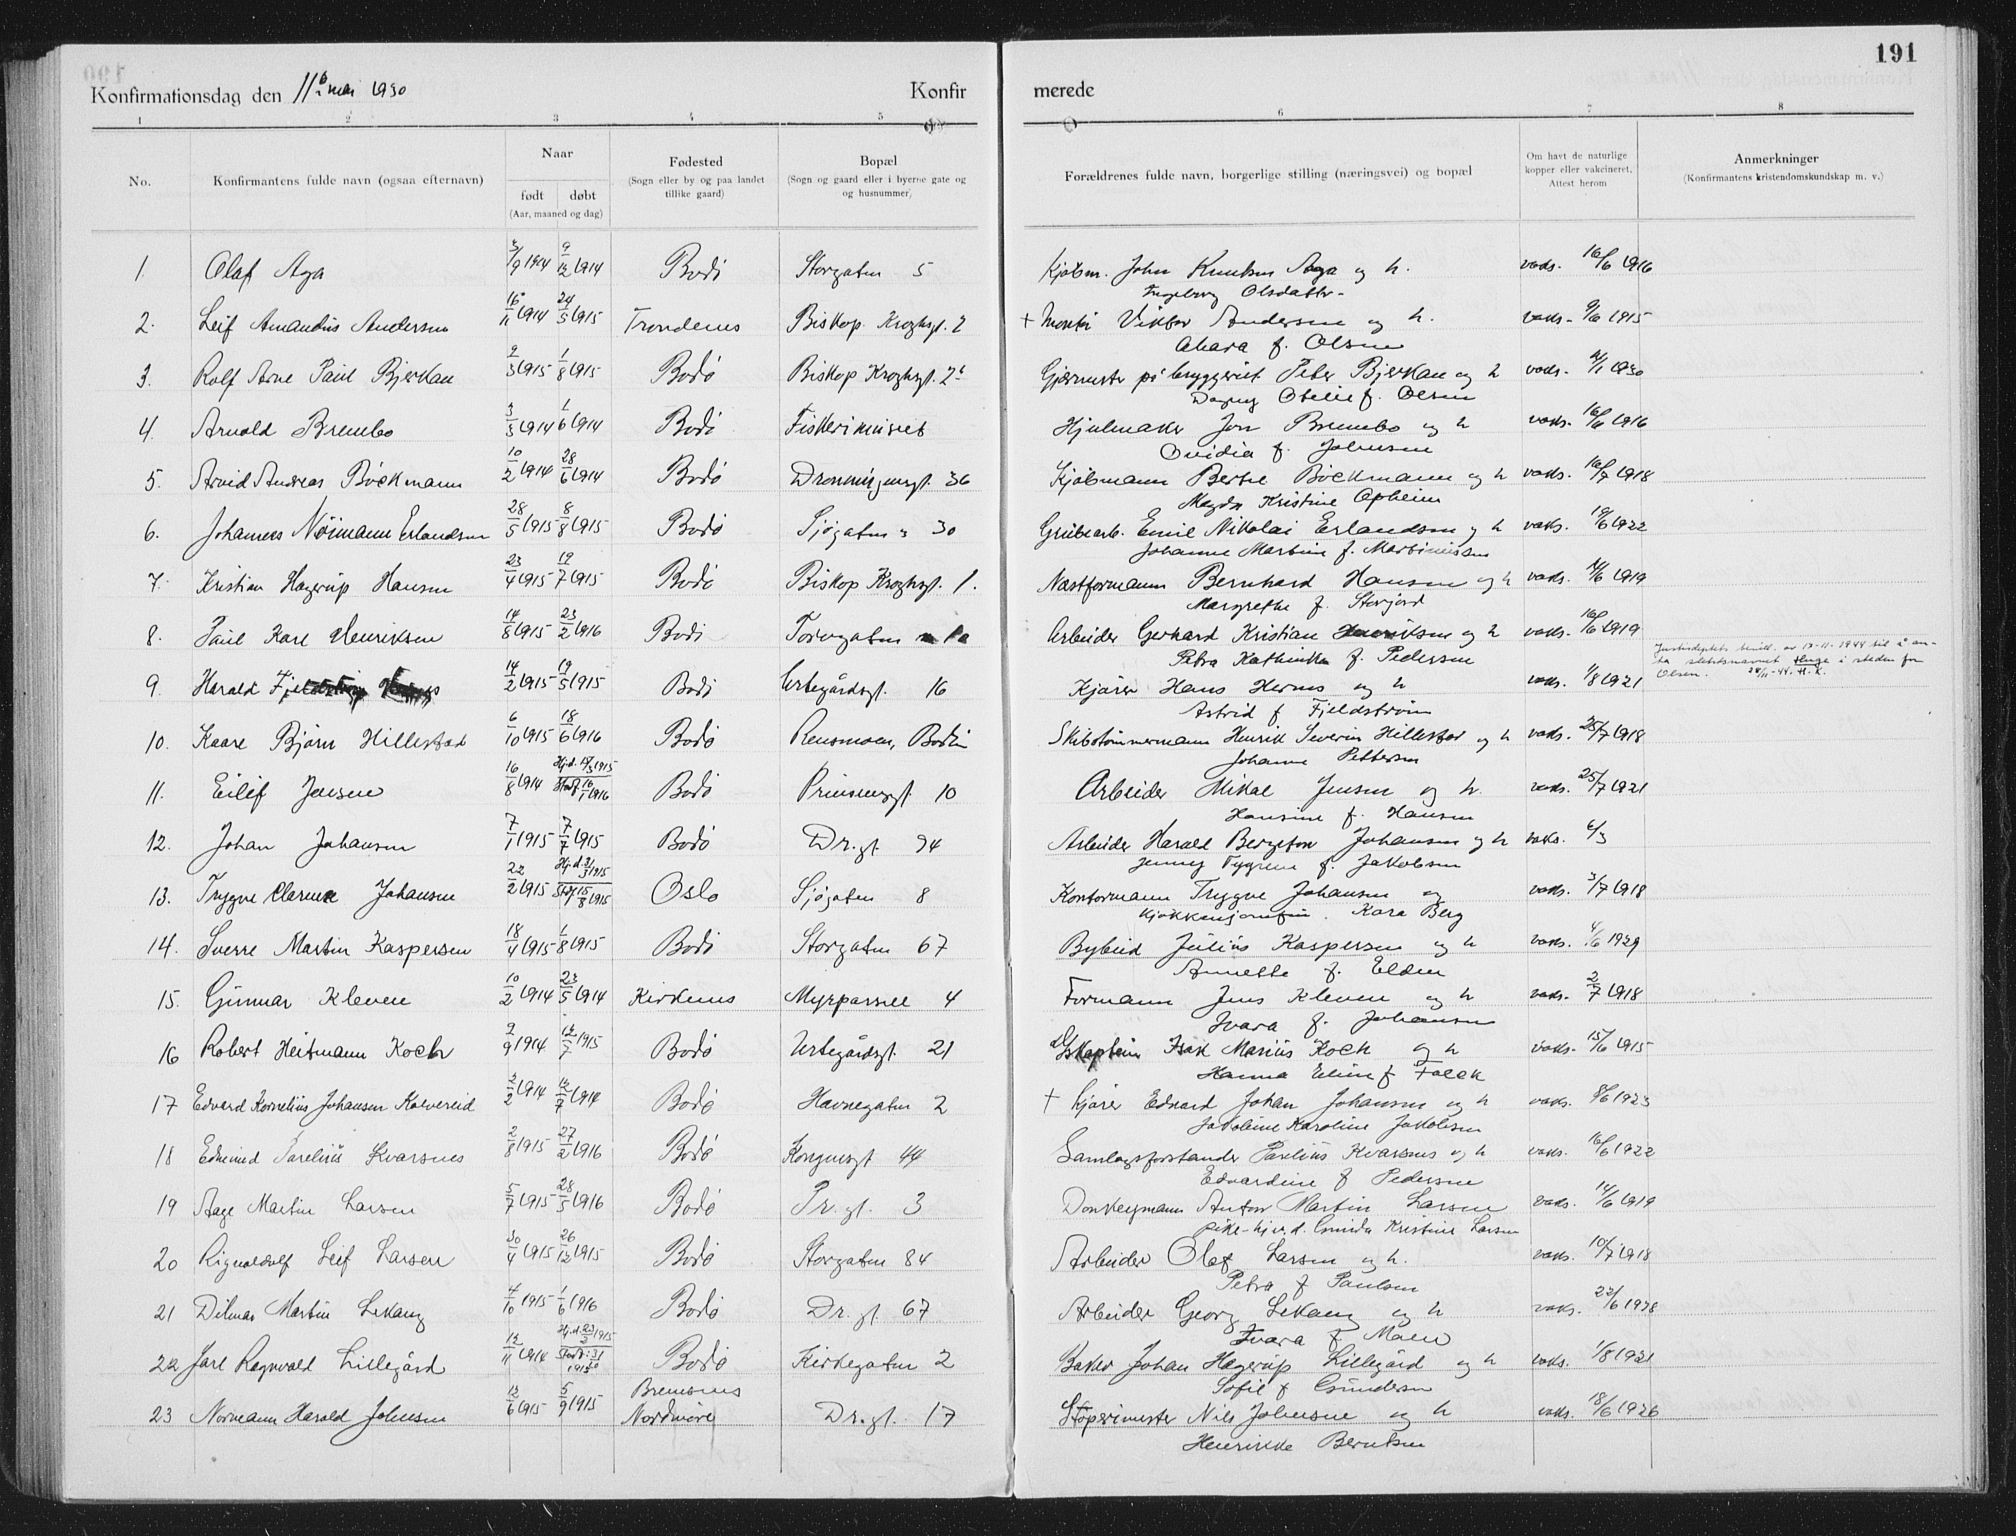 191
Konfirmationsdag den 11te mai 1930
Konfirmerede
1 2 3 4 5 6 7 8
No.
Konfirmantens fulde navn (ogsaa efternavn)
Naar
født døbt
(Aar, maaned og dag)
Fødested
(Sogn eller by og paa landet
tillike gaard)
Bopæl
(Sogn og gaard eller i byerne gate og
og husnummer)
Forældrenes fulde navn, borgerlige stilling (næringsvei) og bopæl
Om havt de naturlige
kopper eller vakcineret.
Attest herom
Anmerkninger
(Konfirmantens kristendomskundskap m. v.)
1. Olaf Aga 3/9 1914 9/12 1914 Bodø Storgaten 5 Kjølsm. John Knutsen Aga og h. vaks. 16/6 1916
Ingeborg Olsdattr.
2. Leif Amandus Andersen 16/11 1914 24/5 1915 Trondenes Biskop Kroghsgt. 2 + Montør Viktor Andersen og h. vaks. 9/6 1915
Ahara f. Olsen
3. Rolf Arne Paul Bjerkan 9/3 1915 1/8 1915 Bodø Biskop Kroghsgt. 2b Gjærmester på bryggeriet Peter Bjerkan og h vaks. 1930
Dagny Otelie f. Olsen
4. Arnold Brembo 3/3 1914 1/6 1914 Bodø Fiskerimuseet Hjulmaker Jon Brembo og h vaks. 16/6 1916
Ovidia f. Johnsen
5. Arvid Andreas Böckmann 10/2 1914 28/6 1914 Bodø Dronningensgt. 36 Kjølsmann Bertil Böckmann og h vaks. 16/7 1918
Magda Kristine Opheim
6. Johannes Normann Erlandsen 28/5 1915 8/8 1915 Bodø Sjøgaten 30 Grubearb. Emil Nikolai Erlandsen og h vaks. 19/6 1922
Johanne Martine f. Martinussen
7. Kristian Hagerup Hansen 23/4 1915 19/7 1915 Bodø Biskop Kroghsgt. 1. Næstformann Bernhard Hansen og h vaks. 1919
Margrethe f. Storjord
8. Paul Karl Henriksen 14/8 1915 23/2 1916 Bodø Torvgaten 1a Arbeider Gerhard Kristian Henriksen og h vaks. 16/6 1919
Petra Kathinka f. Pedersen
Justisdeptets bevill. av 13-11-1944 til å an-
ta slektsnavnet Hauge i steden for
Olsen.
9. Harald 14/2 1915 19/5 1915 Bodø Urtegårdsgt. 16 Kjører Hans Hernes og h vaks. 1/8 1921
Astrid f Fjeldstrøm
10. Kaare Bjørn Hillestad 6/10 1915 18/6 1916 Bodø Rensmoen, Bodin Skibstømmermann Henrik Severin Hillestad og h vaks. 25/7 1918
Johanne Pettersen
11. Eilif Jensen 16/8 1914 Hj.d. 1915 Stadf. 16/1 1916 Bodø Prinsensgt. 10 Arbeider Mikal Jensen og h. vaks. 25/7 1921
Hansine f. Hansen
12. Johan Johansen 7/1 1915 7/7 1915 Bodø Dr.gt. 94 Arbeider Harald Bergeton Johansen og h vaks. 6/3
Jenny Tygrine f. Jakobsen
13. Trygve Clarence Johansen 22/2 1915 Hj.d. 1915 Stdf. 15/8 1915 Oslo Sjøgaten 8 Kontormann Trygve Johansen og vaks. 3/7 1918
kjøkkenjomfru. Kara Berg
14. Sverre Martin Kaspersen 18/4 1915 1/8 1915 Bodø Storgaten 67 Bybud Julius Kaspersen og h vaks. 4/6 1929
Annette f. Elden
15. Gunnar Kleven 10/2 1914 23/5 1914 Kirkenes Myrpassiel 4 Formann Jens Kleven og h vaks. 2/7 1918
Ivara f. Johansen
16 Robert Heitmann Koch 2/9 1914 12/7 1915 Bodø Urtegårdsgt. 21 Skaptein Isak Marius Koch og h vaks. 15/6 1915
Hanna Eline f Falck
17 Edvard Kornelius Johansen Kalvereid 2/2 1914 12/7 1914 Bodø Havnegaten 2 + Kjører Edvard Johan Johansen og h vaks. 8/6 1923
Jakobine Karoline Jakobsen
18 Edmund Parelius Kvarsnes 2/8 1915 27/2 1916 Bodø Kongensgt 44 Samlagsforstander Parelius Kvarsnes og h vaks. 16/6 1922
Edvardine f Pedersen
19 Aage Martin Larsen 5/7 1915 28/5 1916 Bodø Pr.gt. 3 Donkeymann Anton Martin Larsen vaks. 14/6 1919
pike-hj.v.d. Gunda Kristine Larsen
20 Rignaldolf Leif Larsen 30/4 1915 26/12 1915 Bodø Storgaten 84 Arbeider Olaf Larsen og h. vaks. 10/7 1918
Petra f Paulsen
21 Dilmar Martin Lekang 4/10 1915 1/6 1916 Bodø Dr.gt. 67 Arbeider Georg Lekang og h vaks. 22/6 1928
Ivara f Moen
22 Jarl Ragnvald Lillegård 12/11 1914 Hj.d. 23/2 1915 Stadf. Bodø Kirkegaten 2 Baker Johan Hagerup Lillegård og h vaks. 1/8 1921
Sofie f Gundersen
23 Normann Harald Johnsen 12/6 1915 5/9 1915 Bremsnes
Nordmøre Dr.gt. 17 Støperimester Nils Johnsen og h vaks. 18/6 1926
Henrikke Berntsen